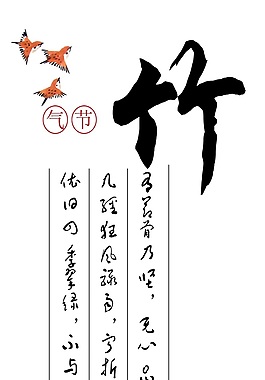 竹
气节
有节骨乃坚，无心品
几经狂风骤雨，宁折
依旧四季翠绿，不与